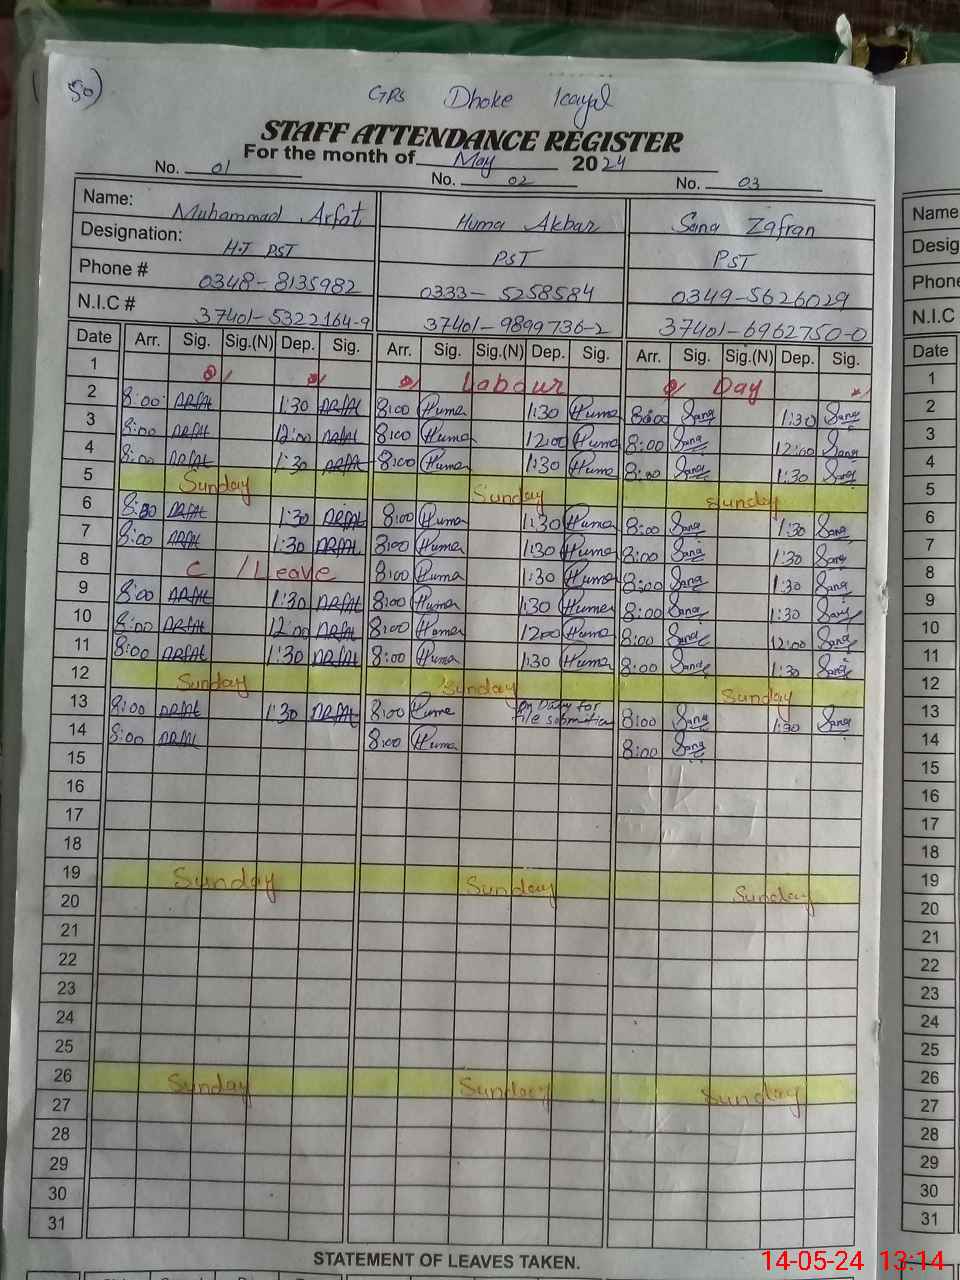 50)
GPS Dhoke
STAFF ATTENDANCE REGISTER
For the month of May 2024
No. 01 No. 02 No. 03
Name: Muhammad Arfat Huma Akbar Sana Zafran
Designation: H.T PST PST PST
Phone # 0348-8135982 0333-5258584 0349-5626029
N.I.C # 37401-5322164-9 37401-9899736-2 37401-6962750-0
Date Arr. Sig. Sig.(N) Dep. Sig. Arr. Sig. Sig.(N) Dep. Sig. Arr. Sig. Sig.(N) Dep. Sig.
1 Labour Day
2 8:00 ARFAt 1:30 ARFAt 8:00 Huma 1:30 Huma 8:00 Sana 1:30 Sana
3 8:00 ARFAt 12:00 ARFAt 8:00 Huma 12:00 Huma 8:00 Sana 12:00 Sana
4 8:00 ARFAt 1:30 ARFAt 8:00 Huma 1:30 Huma 8:00 Sana 1:30 Sana
5 Sunday Sunday Sunday
6 8:00 ARFAt 1:30 ARFAt 8:00 Huma 1:30 Huma 8:00 Sana 1:30 Sana
7 8:00 ARFAt 1:30 ARFAt 8:00 Huma 1:30 Huma 8:00 Sana 1:30 Sana
8 C / Leave 8:00 Huma 1:30 Huma 8:00 Sana 1:30 Sana
9 8:00 ARFAt 1:30 ARFAt 8:00 Huma 1:30 Huma 8:00 Sana 1:30 Sana
10 8:00 ARFAt 12:00 ARFAt 8:00 Huma 1200 Huma 8:00 Sana 12:00 Sana
11 8:00 ARFAt 1:30 ARFAt 8:00 Huma 1:30 Huma 8:00 Sana 1:30 Sana
12 Sunday Sunday Sunday
13 8:00 ARFAt 1:30 ARFAt 8:00 Huma On Duty for file 8:00 Sana 1:30 Sana
14 8:00 ARFAt 8:00 Huma 8:00 Sana
15
16
17
18
19 Sunday Sunday Sunday
20
21
22
23
24
25
26 Sunday Sunday Sunday
27
28
29
30
31
STATEMENT OF LEAVES TAKEN.
Name
Desig
Phone
N.I.C
Date
1
2
3
4
5
6
7
8
9
10
11
12
13
14
15
16
17
18
19
20
21
22
23
24
25
26
27
28
29
30
31
14-05-24 13:14